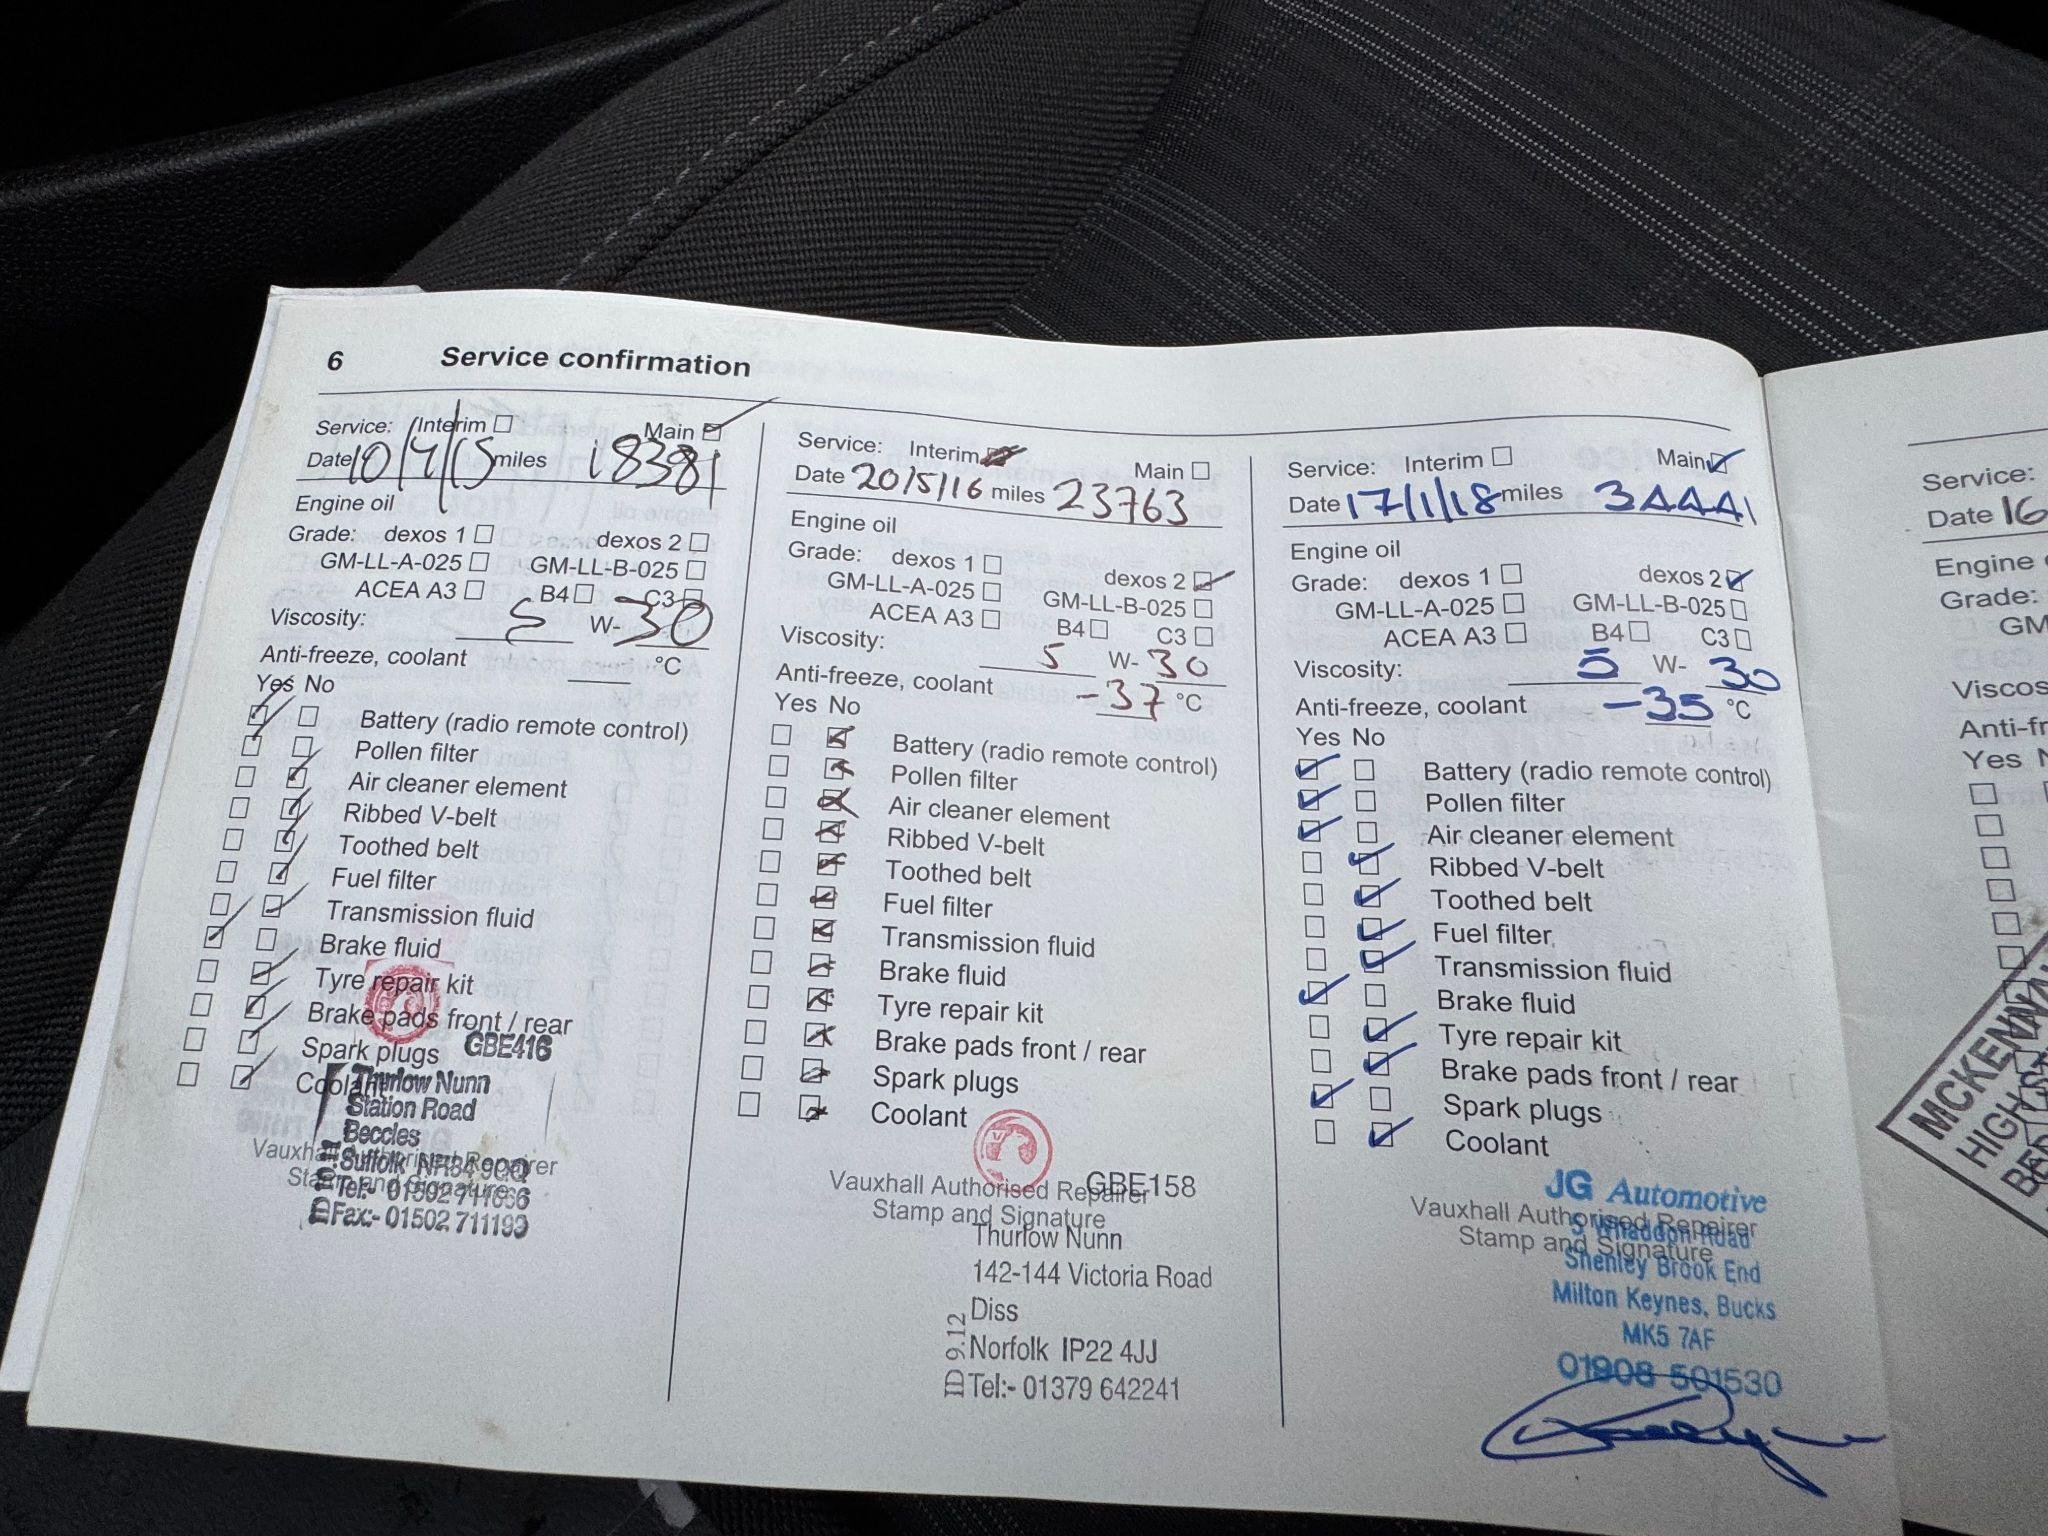 6 Service confirmation
Service: Interim Main
Date 10/4/15 miles 18381
Engine oil
Grade: dexos 1 dexos 2
GM-LL-A-025 GM-LL-B-025
ACEA A3 B4 C3
Viscosity: 5 W-30
Anti-freeze, coolant °C
Yes No
Battery (radio remote control)
Pollen filter
Air cleaner element
Ribbed V-belt
Toothed belt
Fuel filter
Transmission fluid
Brake fluid
Tyre repair kit
Brake pads front / rear
Spark plugs GBE416
Coolant
Thurlow Nunn
Station Road
Beccles
Vauxhall Authorised Repairer
Suffolk NR34 9QQ
Stamp and Signature
Tel:- 01502 711666
Fax:- 01502 711193
Service: Interim Main
Date 20/5/16 miles 23763
Engine oil
Grade: dexos 1 dexos 2
GM-LL-A-025 GM-LL-B-025
ACEA A3 B4 C3
Viscosity: 5 W-30
Anti-freeze, coolant -37 °C
Yes No
Battery (radio remote control)
Pollen filter
Air cleaner element
Ribbed V-belt
Toothed belt
Fuel filter
Transmission fluid
Brake fluid
Tyre repair kit
Brake pads front / rear
Spark plugs
Coolant
Vauxhall Authorised Repairer
GBE158
Stamp and Signature
Thurlow Nunn
142-144 Victoria Road
Diss
Norfolk IP22 4JJ
Tel:- 01379 642241
ID 9.12
Service: Interim Main
Date 17/1/18 miles 34441
Engine oil
Grade: dexos 1 dexos 2
GM-LL-A-025 GM-LL-B-025
ACEA A3 B4 C3
Viscosity: 5 W-30
Anti-freeze, coolant -35 °C
Yes No
Battery (radio remote control)
Pollen filter
Air cleaner element
Ribbed V-belt
Toothed belt
Fuel filter
Transmission fluid
Brake fluid
Tyre repair kit
Brake pads front / rear
Spark plugs
Coolant
JG Automotive
Vauxhall Authorised Repairer
5 Whaddon Road
Stamp and Signature
Shenley Brook End
Milton Keynes, Bucks
MK5 7AF
01908 501530
Service:
Date 16
Engine
Grade:
GM
Viscos
Anti-fr
Yes N
MCKENNA
HIGH ST